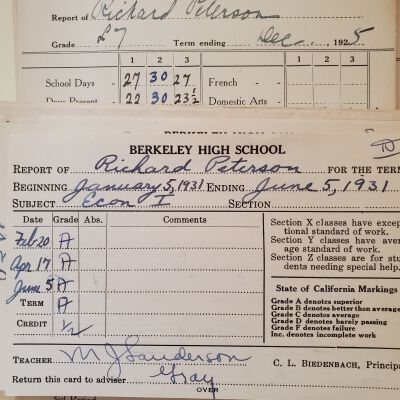 Report of Richard Peterson
Grade L7 Term ending Dec. 1925
1 2 3 1 2 3
School Days 27 30 27 French - -
Days Present 22 30 23½ Domestic Arts -
BERKELEY HIGH SCHOOL
REPORT OF Richard Peterson FOR THE TERM
BEGINNING January 5, 1931 ENDING June 5, 1931
SUBJECT Econ I SECTION
Date Grade Abs. Comments
Feb-20 A
Apr 17 A
June 5 A
TERM A
CREDIT ½
Section X classes have excep-
tional standard of work.
Section Y classes have aver-
age standard of work.
Section Z classes are for stu-
dents needing special help.
State of California Markings
Grade A denotes superior
Grade B denotes better than average
Grade C denotes average
Grade D denotes barely passing
Grade F denotes failure
Inc. denotes incomplete work
TEACHER M J Sanderson
C. L. BIEDENBACH, Principa
Return this card to adviser Gray
OVER
3rd Period